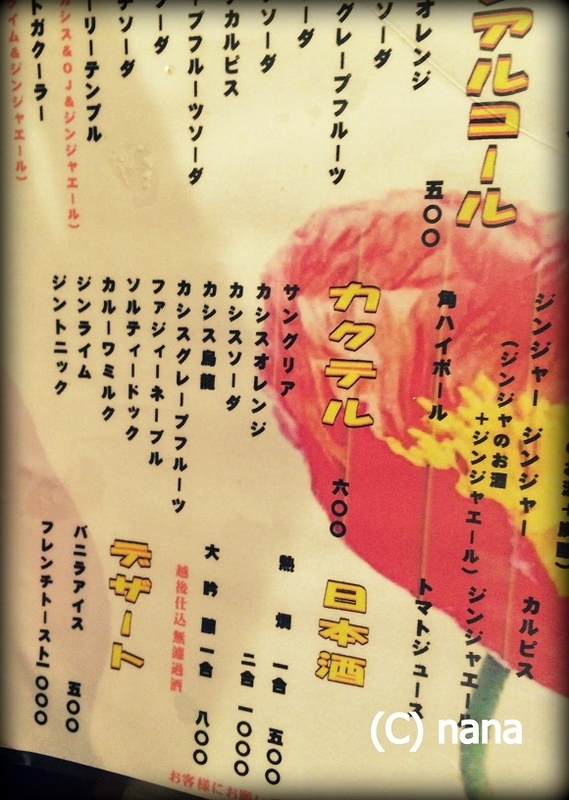 アルコール
五〇〇
オレンジ
グレープフルーツ
カルピス
プフルーツソーダ
リーテンプル
カシス&OJ&ジンジャエール)
イム&ジンジャエール)
ジンジャー ジンジャー
(ジンジャのお酒
+ジンジャエール)
角ハイボール
カクテル
六〇〇
サングリア
カシスオレンジ
カシスソーダ
カシス烏龍
カシスグレープフルーツ
ファジィーネーブル
ソルティードック
カルーワミルク
ジンライム
ジントニック
カルピス
ジンジャエール
トマトジュース
日本酒
熱燗 一合 五〇〇
二合 一〇〇〇
大吟醸 一合 八〇〇
越後仕込無濾過酒
デザート
バニラアイス 五〇〇
フレンチトースト一〇〇〇
お客様にお願
(C) nana